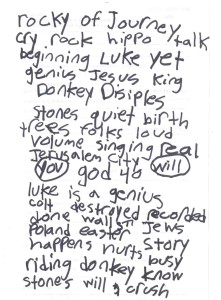 rocky of Journey
cry rock hippo talk
beginning Luke yet
genius Jesus king
Donkey Disiples
stones quiet birth
trees folks loud
volume singing real
Jerusalem city will
you god 40
luke is a genius
colt destroyed recorded
done walls Jews
Poland easter story
happens hurts busy
riding donkey know
stones will crush